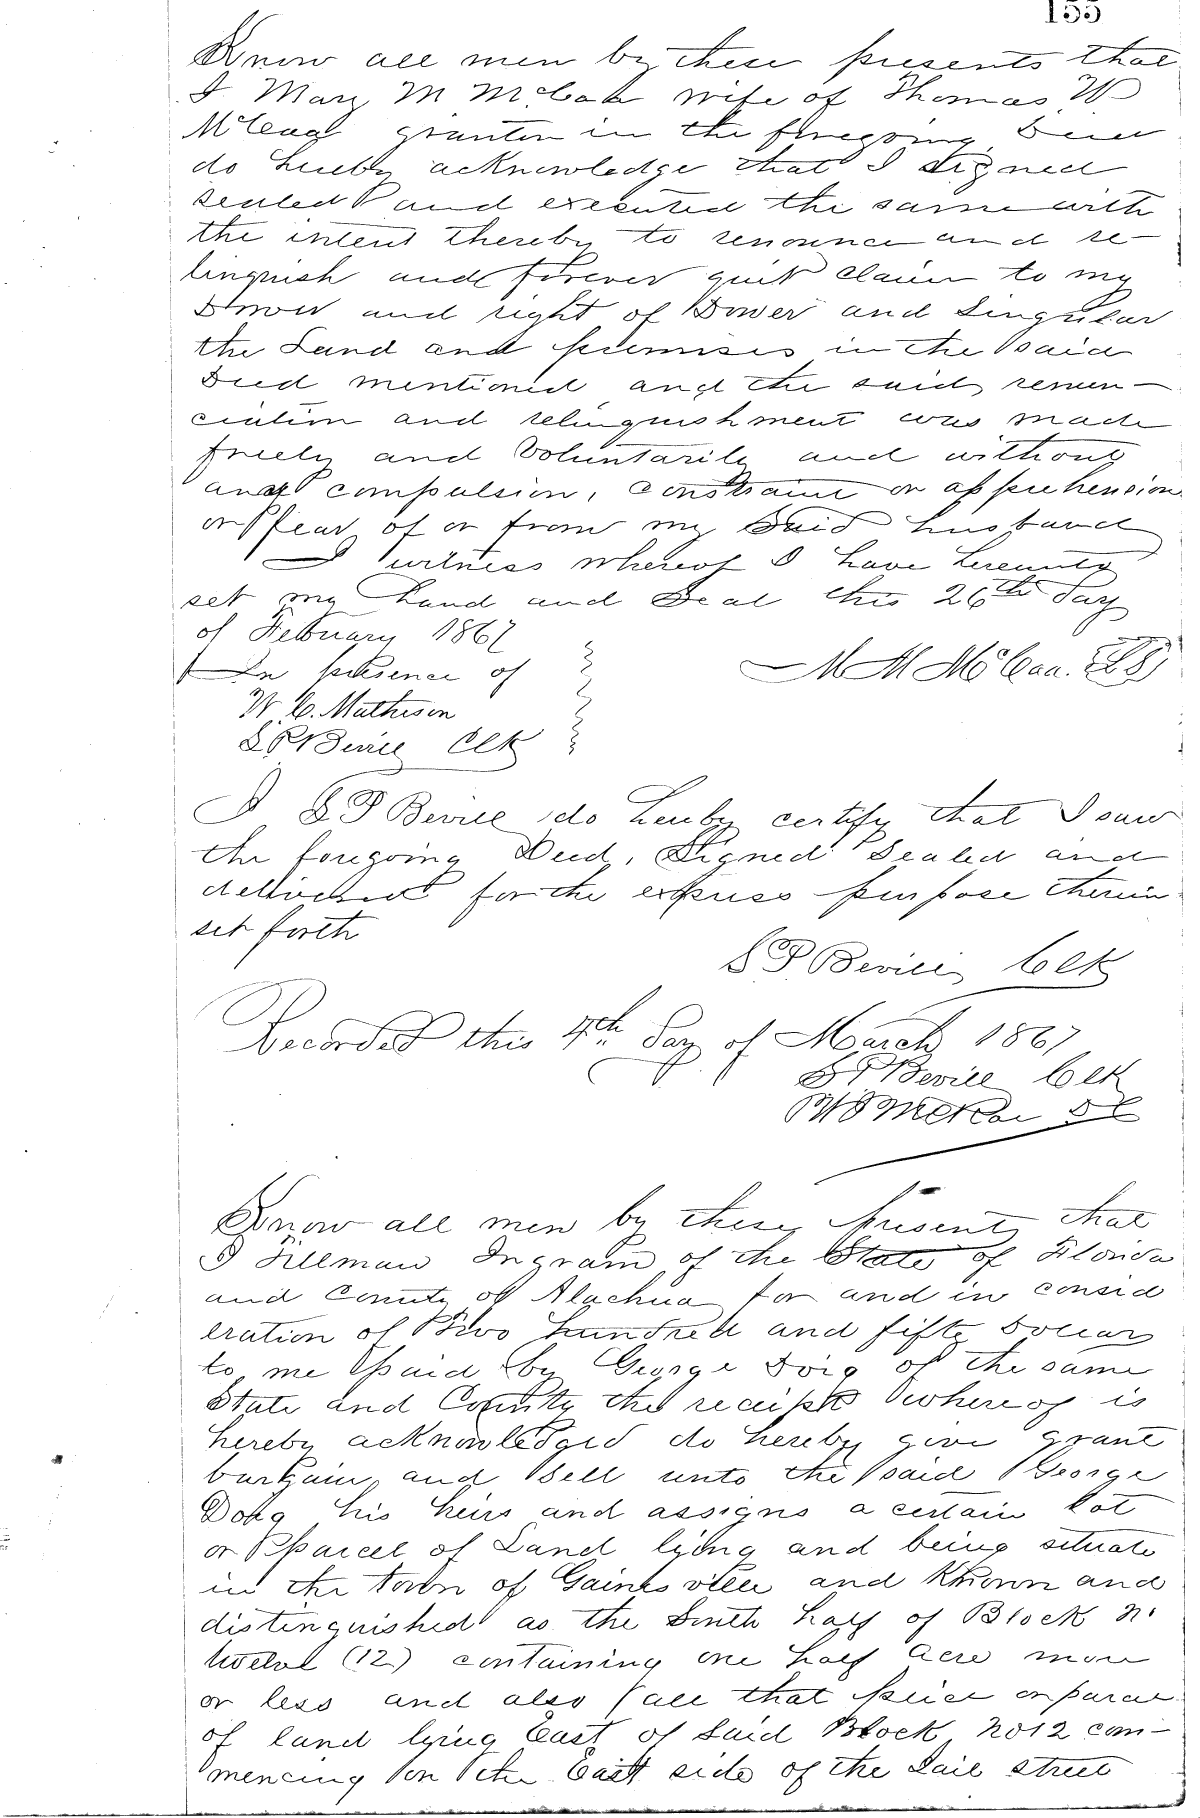 155
Know all men by these presents that
I Mary M McCaa wife of Thomas W
McCaa grantor in the foregoing Deed
do hereby acknowledge that I signed
sealed and executed the same with
the intent thereby to renounce and re-
linquish and forever quit claim to my
Dower and right of Dower and Singular
the Land and premises in the said
Deed mentioned and the said renun-
ciation and relinquishment was made
freely and Voluntarily and without
any compulsion, constraint or apprehension
or fear of or from my Said husband
I witness whereof I have hereunto
set my hand and Seal this 26th Day
of February 1867
In presence of M M McCaa. LS
W. C. Matheson
S P Bevill Clk
I S P Bevill do hereby certify that I saw
the foregoing Deed, Signed Sealed and
delivered for the express purpose therein
set forth
S P Bevill Clk
Recorded this 4th Day of March 1867
S P Bevill Clk
DC
Know all men by these Presents that
I Tillman Ingram of the State of Florida
and County of Alachua for and in consid
eration of Two hundred and fifty Dollars
to me paid by George Doig of the same
State and County the receipt whereof is
hereby acknowledged do hereby give grant
bargain and Sell unto the said George
Doig his heirs and assigns a certain Lot
or Parcel of Land lying and being situate
in the town of Gainesville and Known and
distinguished as the South half of Block N.
twelve (12) containing one half Acre more
or less and also all that piece or parcel
of land lying East of Said Block No 12 com-
mencing on the East side of the Said street